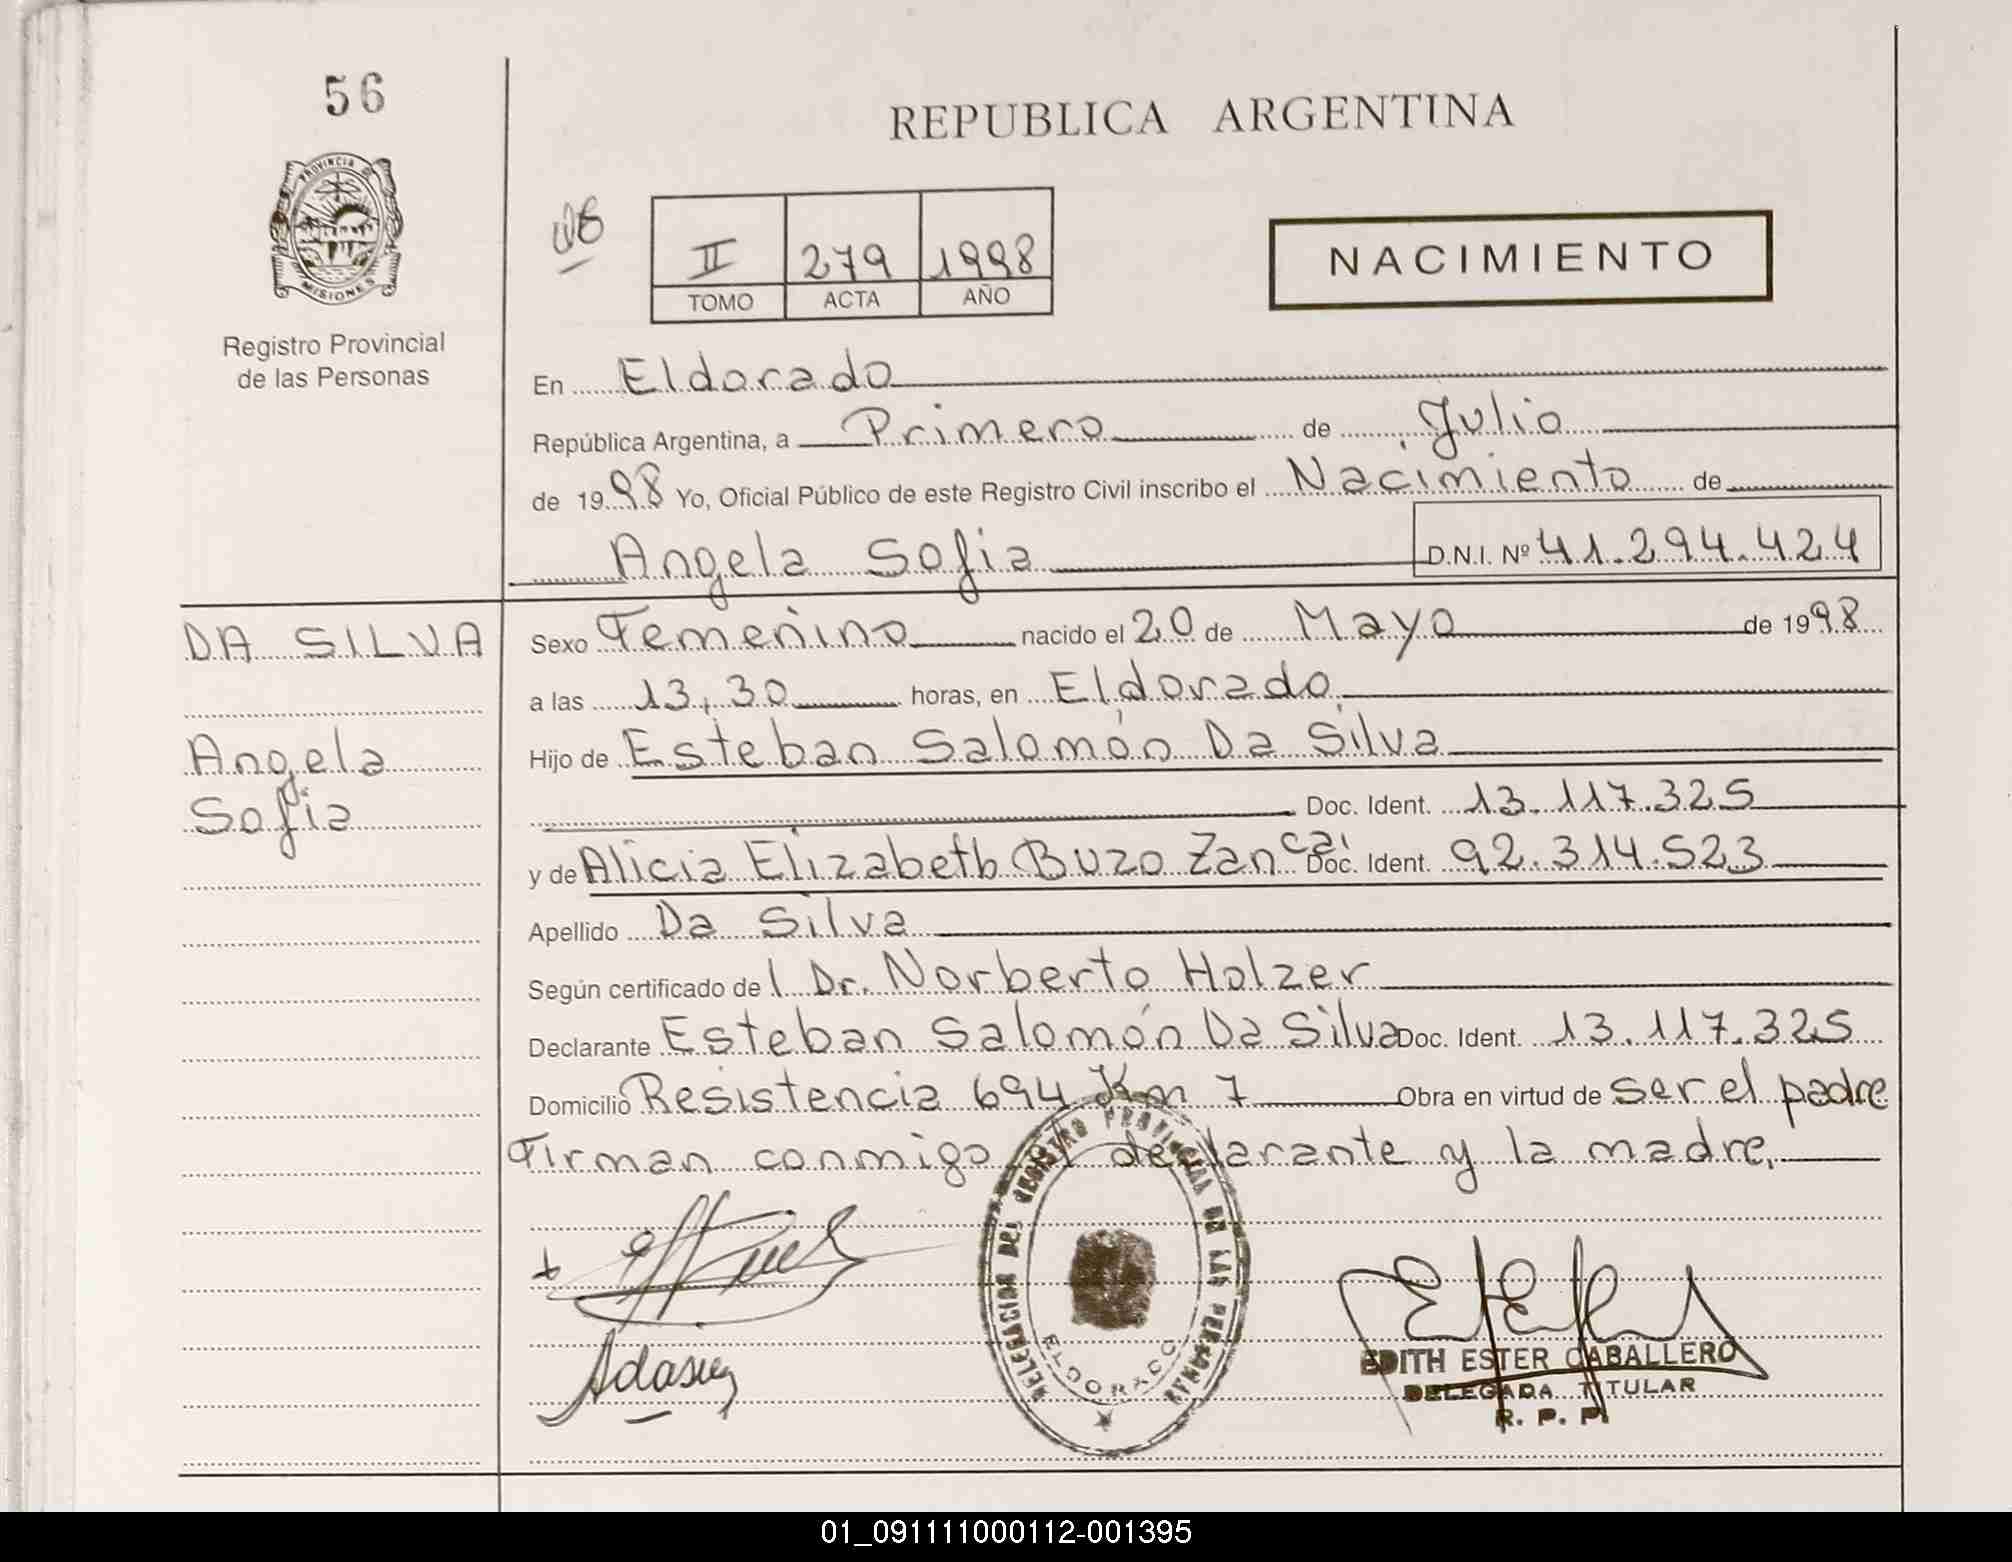 56
REPUBLICA ARGENTINA
PROVINCIA DE
MISIONES
II 279 1998
TOMO ACTA AÑO
NACIMIENTO
Registro Provincial
de las Personas
En Eldorado
República Argentina, a Primero de Julio
de 1998 Yo, Oficial Público de este Registro Civil inscribo el Nacimiento de
Angela Sofia D.N.I. Nº 41.294.424
DA SILVA
Angela
Sofia
Sexo Femenino nacido el 20 de Mayo de 1998
a las 13,30 horas, en Eldorado
Hijo de Esteban Salomón Da Silva
Doc. Ident. 13.117.325
y de Alicia Elizabeth Buzo Zanca Doc. Ident. 92.314.523
Apellido Da Silva
Según certificado del Dr. Norberto Holzer
Declarante Esteban Salomón Da Silva Doc. Ident. 13.117.325
Domicilio Resistencia 694 Km 7 Obra en virtud de ser el padre
Firman conmigo el declarante y la madre.
DELEGACION DEL REGISTRO PROVINCIAL DE LAS PERSONAS
ELDORADO
EDITH ESTER CABALLERO
DELEGADA TITULAR
R. P. P.
01_091111000112-001395